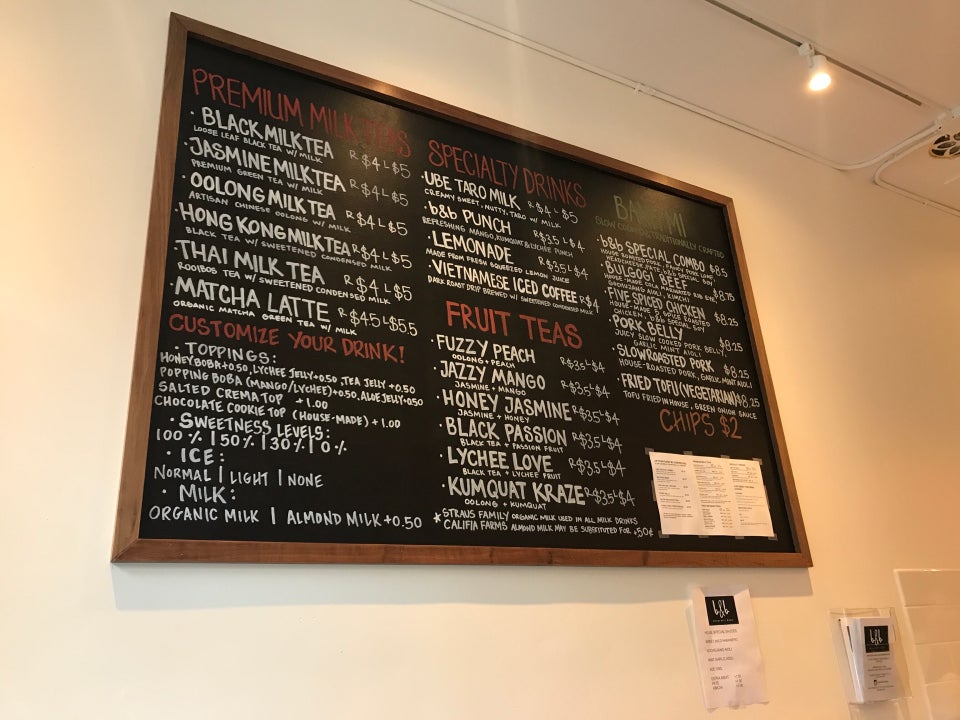 PREMIUM MILK TEAS
· BLACK MILK TEA R $4 L $5
LOOSE LEAF BLACK TEA W/ MILK
· JASMINE MILK TEA R $4 L $5
PREMIUM GREEN TEA W/ MILK
· OOLONG MILK TEA R $4 L $5
ARTISAN CHINESE OOLONG W/ MILK
· HONG KONG MILK TEA R $4 L $5
BLACK TEA W/ SWEETENED CONDENSED MILK
· THAI MILK TEA R $4 L $5
ROOIBOS TEA W/ SWEETENED CONDENSED MILK
· MATCHA LATTE R $4.5 L $5.5
ORGANIC MATCHA GREEN TEA W/ MILK
CUSTOMIZE YOUR DRINK!
· TOPPINGS:
HONEY BOBA +0.50, LYCHEE JELLY +0.50, TEA JELLY +0.50
POPPING BOBA (MANGO/LYCHEE) +0.50, ALOE JELLY +0.50
SALTED CREMA TOP +1.00
CHOCOLATE COOKIE TOP (HOUSE-MADE) +1.00
· SWEETNESS LEVELS:
100% | 50% | 30% | 0%
· ICE:
NORMAL | LIGHT | NONE
· MILK:
ORGANIC MILK | ALMOND MILK +0.50
SPECIALTY DRINKS
· UBE TARO MILK R $4 L $5
CREAMY SWEET, NUTTY, TARO W/ MILK
· b&b PUNCH R $3.5 L $4
REFRESHING MANGO, KUMQUAT & LYCHEE PUNCH
· LEMONADE R $3.5 L $4
MADE FROM FRESH SQUEEZED LEMON JUICE
· VIETNAMESE ICED COFFEE R $4
DARK ROAST DRIP BREWED W/ SWEETENED CONDENSED MILK
FRUIT TEAS
· FUZZY PEACH R $3.5 L $4
OOLONG + PEACH
· JAZZY MANGO R $3.5 L $4
JASMINE + MANGO
· HONEY JASMINE R $3.5 L $4
JASMINE + HONEY
· BLACK PASSION R $3.5 L $4
BLACK TEA + PASSION FRUIT
· LYCHEE LOVE R $3.5 L $4
BLACK TEA + LYCHEE FRUIT
· KUMQUAT KRAZE R $3.5 L $4
OOLONG + KUMQUAT
* STRAUS FAMILY ORGANIC MILK USED IN ALL MILK DRINKS
CALIFIA FARMS ALMOND MILK MAY BE SUBSTITUTED FOR +50¢
BANH MI
SLOW COOKED & TRADITIONALLY CRAFTED
· b&b SPECIAL COMBO $8.5
HOUSE ROASTED PORK, FANCY PORK LOAF
HEADCHEESE, PATE, b&b SPECIAL SOY
· BULGOGI BEEF $8.75
HOUSE MADE COLA MARINATED RIB EYE,
GOCHUJANG AIOLI, KIMCHI
· FIVE SPICED CHICKEN $8.25
HOUSE-MADE 5 SPICE ROASTED
CHICKEN, b&b SPECIAL SOY
· PORK BELLY $8.25
JUICY SLOW COOKED PORK BELLY,
GARLIC MINT AIOLI
· SLOW ROASTED PORK $8.25
HOUSE-ROASTED PORK, GARLIC MINT AIOLI
· FRIED TOFU (VEGETARIAN) $8.25
TOFU FRIED IN HOUSE, GREEN ONION SAUCE
CHIPS $2
b&b
b&b